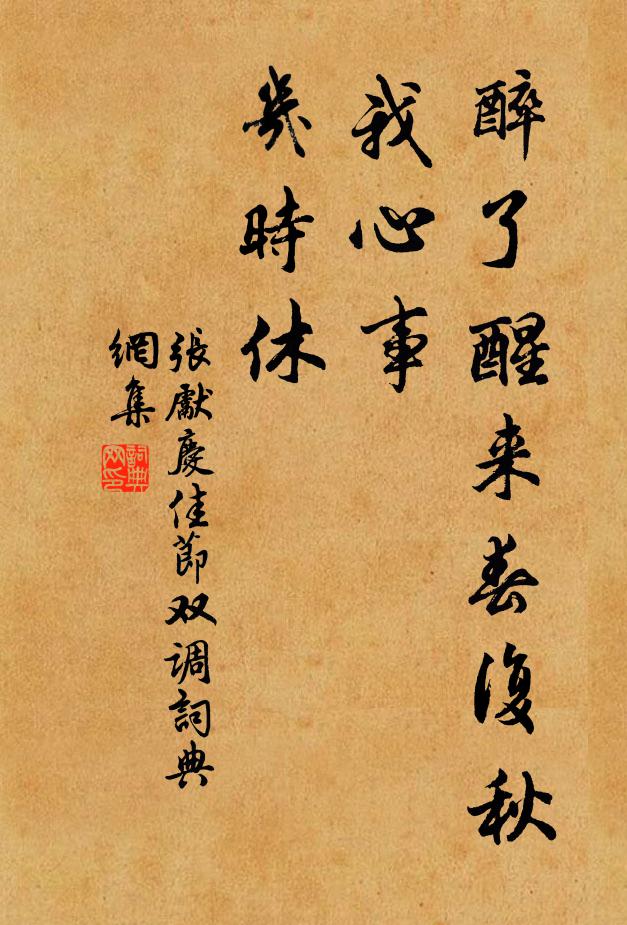 醉了醒来春復秋
我心事
幾時休
張獻慶佳節双调詞典
網集
詞典
网印